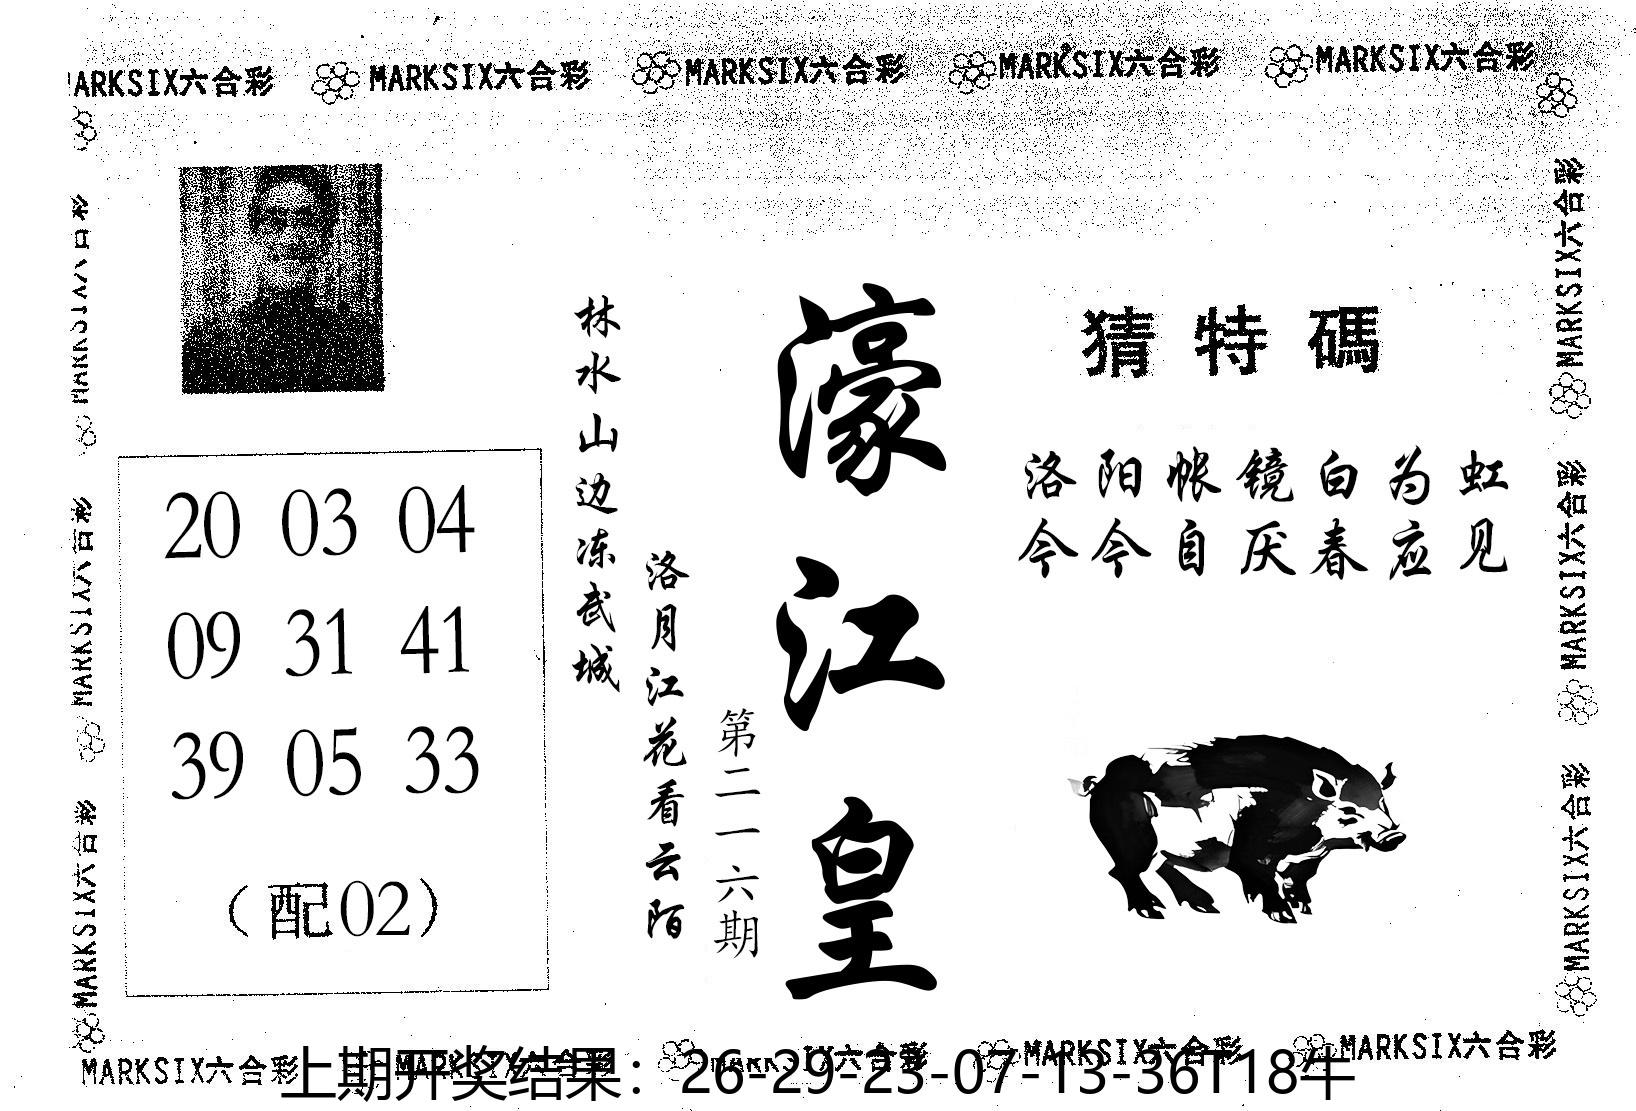 MARKSIX六合彩 MARKSIX六合彩 MARKSIX六合彩 MARKSIX六合彩 MARKSIX六合彩
MARKSIX六合彩
MARKSIX六合彩
MARKSIX六合彩
MARKSIX六合彩
MARKSIX六合彩
MARKSIX六合彩
20 03 04
09 31 41
39 05 33
（配02）
林水山边冻武城
洛月江花看云陌
第二一六期
濠江皇
猜特碼
洛阳帐镜白为虹
今今自厌春应见
MARKSIX六合彩 MARKSIX六合彩 MARKSIX六合彩 MARKSIX六合彩 MARKSIX六合彩
上期开奖结果：26-29-23-07-13-36T18牛